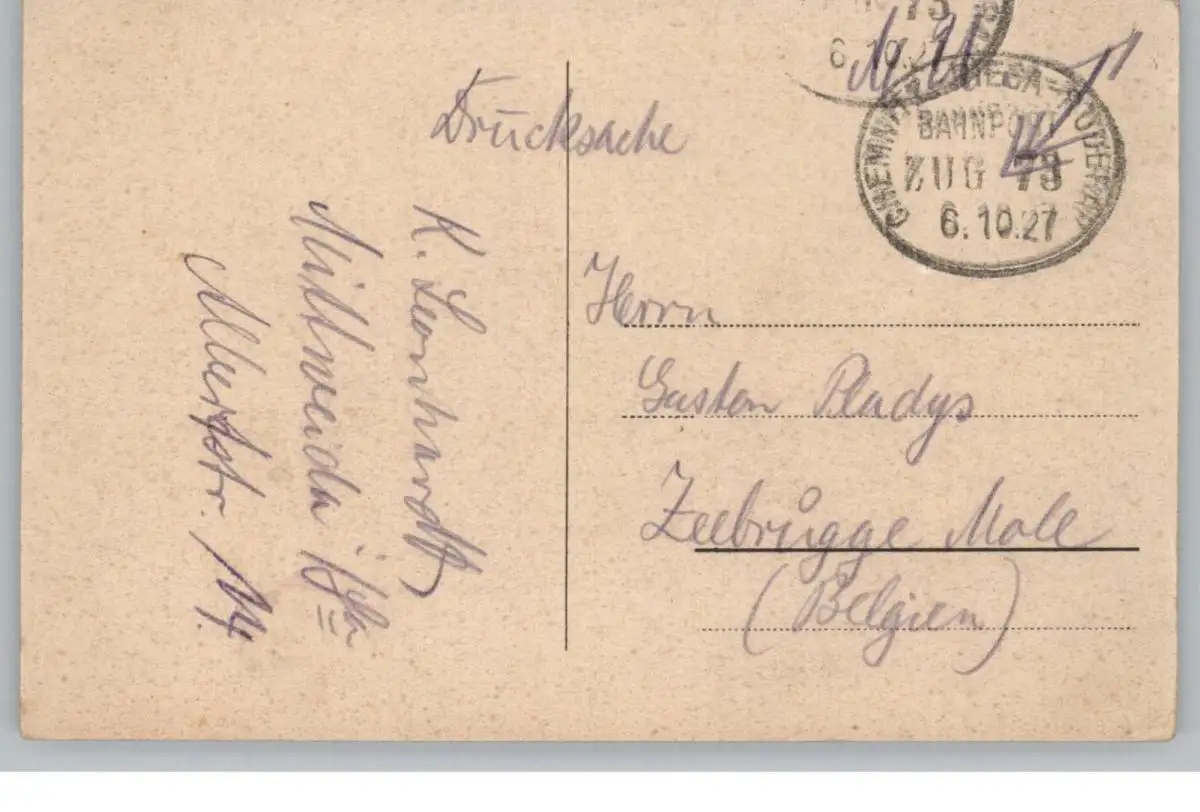 73
6.10.27
CHEMNITZ-RIESA-RÖDERAU
BAHNPOST
ZUG 73
6.10.27
Drucksache
K. Leonhardt
Mittweida i/Sa
Albertstr.
Herrn
Gaston Pladys
Zeebrügge Mole
(Belgien)